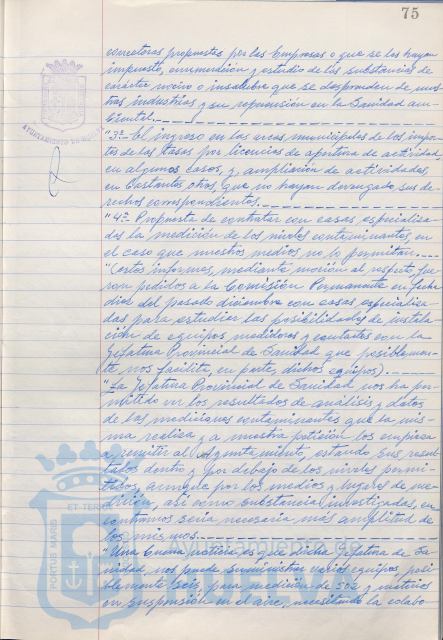 75
correctoras propuestas por las Empresas o que se les hayan
impuesto, enumeración y estudio de las substancias de
carácter nocivo o insalubre que se desprenden de nues-
tras industrias y su repercusión en la Sanidad am-
biental.
"3º- El ingreso en las arcas municipales de los impor-
tes de las tasas por licencias de apertura de actividad
en algunos casos, y ampliación de actividades,
en bastantes otros que no hayan devengado sus de-
rechos correspondientes.
"4º- Propuesta de contratar con casas especializa-
das la medición de los niveles contaminantes, en
el caso que nuestros medios no lo permitan.
"(estos informes, mediante moción al respecto, fue-
ron pedidos a la Comisión Permanente en fecha
dies del pasado diciembre con casas especializa-
das para estudiar las posibilidades de instala-
ción de equipos medidores y contactos con la
Jefatura Provincial de Sanidad que posiblemen-
te nos facilite, en parte, dichos equipos).
"La Jefatura Provincial de Sanidad nos ha per-
mitido ver los resultados de análisis y datos
de las mediciones contaminantes que la mis-
ma realiza y a nuestra petición los empieza
a remitir al Ayuntamiento, estando sus resul-
tados dentro y por debajo de los niveles permi-
tidos, aunque por los medios y lugares de me-
dición, así como substancias investigadas, en-
contramos sería necesaria más amplitud de
los mismos.
"Una buena noticia es que dicha Jefatura de Sa-
nidad, nos puede suministrar varios equipos, posi-
blemente seis, para medición de SO2 y materias
en suspensión en el aire, necesitando la colabo-
AYUNTAMIENTO DE HUELVA
PORTUS MARIS
ET TERRAE
Ayuntamiento de
HUELVA